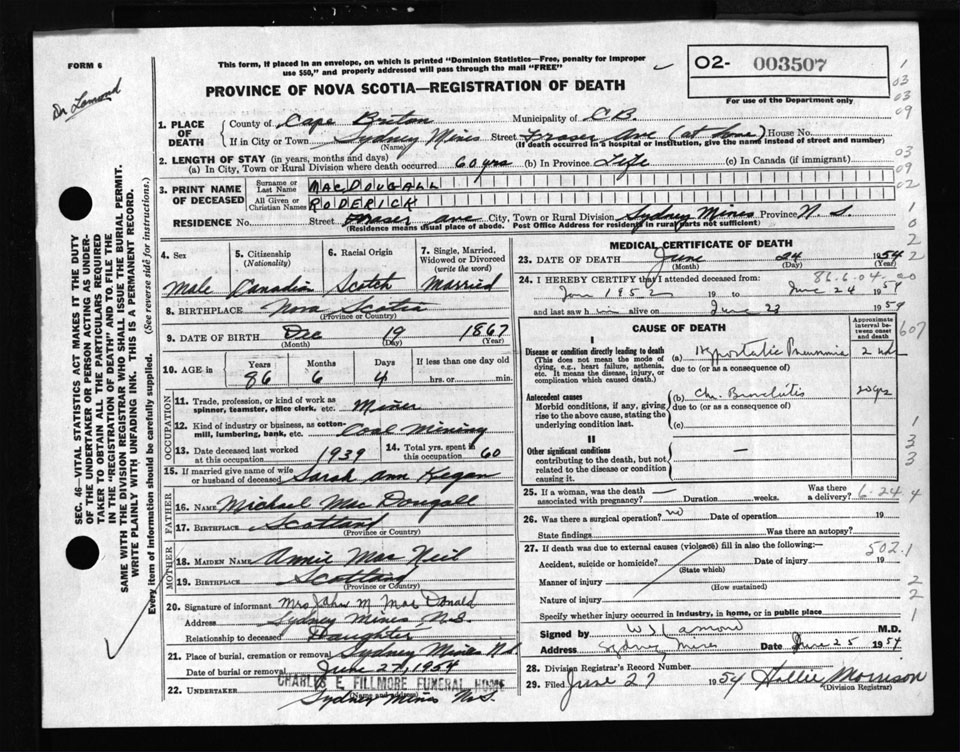 FORM 6
This form, if placed in an envelope, on which is printed "Dominion Statistics—Free, penalty for improper
use $50," and properly addressed will pass through the mail "FREE"
PROVINCE OF NOVA SCOTIA—REGISTRATION OF DEATH
02- 003507
For use of the Department only
Dr Lamond
1. PLACE OF DEATH
County of Cape Breton Municipality of C.B.
If in City or Town Sydney Mines Street Fraser Ave (at home) House No.
(Name) (If death occurred in a hospital or institution, give the name instead of street and number)
2. LENGTH OF STAY (in years, months and days)
(a) In City, Town or Rural Division where death occurred 60 yrs (b) In Province Life (c) In Canada (if immigrant)
3. PRINT NAME OF DECEASED
Surname or Last Name MACDOUGALL
All Given or Christian Names RODERICK
RESIDENCE No. Street Fraser Ave City, Town or Rural Division Sydney Mines Province N.S.
(Residence means usual place of abode. Post Office Address for residents in rural parts not sufficient)
4. Sex
Male
5. Citizenship (Nationality)
Canadian
6. Racial Origin
Scotch
7. Single, Married, Widowed or Divorced (write the word)
Married
8. BIRTHPLACE Nova Scotia
(Province or Country)
9. DATE OF BIRTH Dec 19 1867
(Month) (Day) (Year)
10. AGE in Years Months Days If less than one day old
86 6 4 hrs. or min.
OCCUPATION
11. Trade, profession, or kind of work as
spinner, teamster, office clerk, etc. Miner
12. Kind of industry or business, as cotton-
mill, lumbering, bank, etc. Coal Mining
13. Date deceased last worked at this occupation 1939
14. Total yrs. spent in this occupation 60
15. If married give name of wife
or husband of deceased Sarah Ann Kegan
FATHER
16. Name Michael MacDougall
17. BIRTHPLACE Scotland
(Province or Country)
MOTHER
18. MAIDEN NAME Annie MacNeil
19. BIRTHPLACE Scotland
(Province or Country)
20. Signature of informant Mrs John M MacDonald
Address Sydney Mines N.S.
Relationship to deceased Daughter
21. Place of burial, cremation or removal Sydney Mines N.S.
Date of burial or removal June 27, 1954
CHARLES E. FILLMORE FUNERAL HOME
22. UNDERTAKER (Name and address)
Sydney Mines N.S.
MEDICAL CERTIFICATE OF DEATH
23. DATE OF DEATH June 24 1954
(Month) (Day) (Year)
24. I HEREBY CERTIFY that I attended deceased from:
Jan 1952 19 to June 24 1954
and last saw him alive on June 23 1954
CAUSE OF DEATH
Approximate interval between onset and death
I
Disease or condition directly leading to death
(This does not mean the mode of
dying, e.g., heart failure, asthenia,
etc. It means the disease, injury, or
complication which caused death.)
(a) Hypostatic Pneumonia
due to (or as a consequence of)
Antecedent causes
Morbid conditions, if any, giving
rise to the above cause, stating the
underlying condition last.
(b) Ch. Bronchitis 20 yrs
due to (or as a consequence of)
(c)
II
Other significant conditions
contributing to the death, but not
related to the disease or condition
causing it.
25. If a woman, was the death
associated with pregnancy? Duration weeks. Was there a delivery?
26. Was there a surgical operation? no Date of operation 19
State findings Was there an autopsy?
27. If death was due to external causes (violence) fill in also the following:—
Accident, suicide or homicide? Date of injury 19
(State which)
Manner of injury
(How sustained)
Nature of injury
Specify whether injury occurred in industry, in home, or in public place
Signed by W S Lamond M.D.
Address Sydney Mines Date June 25 1954
28. Division Registrar's Record Number
29. Filed June 27 1954 Hollie Morrison
(Division Registrar)
SEC. 46—VITAL STATISTICS ACT MAKES IT THE DUTY
OF THE UNDERTAKER OR PERSON ACTING AS UNDER-
TAKER TO OBTAIN ALL THE PARTICULARS REQUIRED
IN THE "REGISTRATION OF DEATH" AND TO FILE THE
SAME WITH THE DIVISION REGISTRAR WHO SHALL ISSUE THE BURIAL PERMIT.
WRITE PLAINLY WITH UNFADING INK. THIS IS A PERMANENT RECORD.
Every item of information should be carefully supplied. (See reverse side for instructions.)
1
03
03
09
03
09
02
1
0
2
2
607
1
3
3
6.24.4
502.1
2
2
1